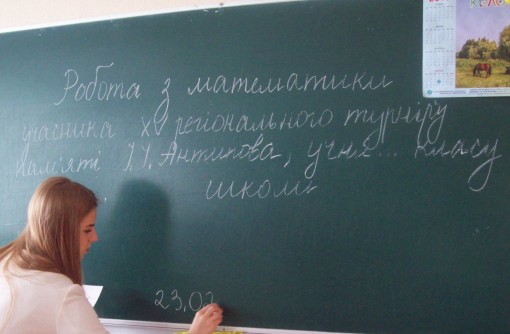 КЕЛО
Робота з математики
учасника X регіонального турніру
пам'яті І.І. Антипова, учня... класу
школи
23.02